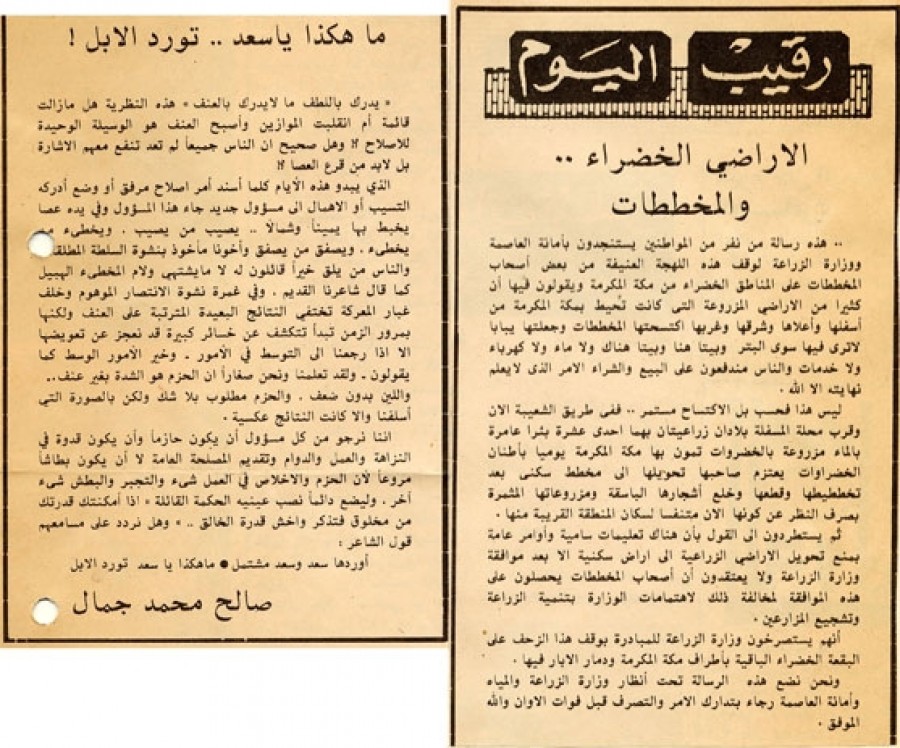 رقيب اليوم
الاراضي الخضراء ..
والمخططات
.. هذه رسالة من نفر من المواطنين يستنجدون بأمانة العاصمة
ووزارة الزراعة لوقف هذه اللهجة العنيفة من بعض أصحاب
المخططات على المناطق الخضراء من مكة المكرمة ويقولون فيها أن
كثيرا من الاراضي المزروعة التى كانت تحيط بمكة المكرمة من
أسفلها وأعلاها وشرقها وغربها اكتسحتها المخططات وجعلتها يبابا
لاترى فيها سوى البتر وبيتا هنا وبيتا هناك ولا ماء ولا كهرباء
ولا خدمات والناس مندفعون على البيع والشراء الامر الذى لايعلم
نهايته الا الله .
ليس هذا فحسب بل الاكتساح مستمر .. ففى طريق الشعيبة الان
وقرب محلة المسفلة بلادان زراعيتان بهما احدى عشرة بئرا عامرة
بالماء مزروعة بالخضروات تمون بها مكة المكرمة يوميا بأطنان
الخضراوات يعتزم صاحبها تحويلها الى مخطط سكنى بعد
تخطيطها وقطعها وخلع أشجارها الباسقة ومزروعاتها المثمرة
بصرف النظر عن كونها الان متنفسا لسكان المنطقة القريبة منها .
ثم يستطردون الى القول بأن هناك تعليمات سامية وأوامر عامة
بمنع تحويل الاراضي الزراعية الى اراض سكنية الا بعد موافقة
وزارة الزراعة ولا يعتقدون أن أصحاب المخططات يحصلون على
هذه الموافقة لمخالفة ذلك لاهتمامات الوزارة بتنمية الزراعة
وتشجيع المزارعين .
أنهم يستصرخون وزارة الزراعة للمبادرة بوقف هذا الزحف على
البقعة الخضراء الباقية بأطراف مكة المكرمة ودمار الابار فيها .
ونحن نضع هذه الرسالة تحت أنظار وزارة الزراعة والمياه
وأمانة العاصمة رجاء بتدارك الامر والتصرف قبل فوات الاوان والله
الموفق .
ما هكذا ياسعد .. تورد الابل !
« يدرك باللطف ما لايدرك بالعنف » هذه النظرية هل مازالت
قائمة أم انقلبت الموازين وأصبح العنف هو الوسيلة الوحيدة
للاصلاح ؟! وهل صحيح ان الناس جميعاً لم تعد تنفع معهم الاشارة
بل لابد من قرع العصا ؟!
الذي يبدو هذه الأيام كلما أسند أمر اصلاح مرفق أو وضع أدركه
التسيب أو الاهمال الى مسؤول جديد جاء هذا المسؤول وفي يده عصا
يخبط بها يميناً وشمالاً .. يصيب من يصيب . ويخطىء من
يخطىء . ويصفق من يصفق وأخونا مأخوذ بنشوة السلطة المطلقة
والناس من يلق خيراً قائلون له لا مايشتهي ولام المخطىء الهبيل
كما قال شاعرنا القديم . وفي غمرة نشوة الانتصار الموهوم وخلف
غبار المعركة تختفي النتائج البعيدة المترتبة على العنف ولكنها
بمرور الزمن تبدأ تتكشف عن خسائر كبيرة قد نعجز عن تعويضها
الا اذا رجعنا الى التوسط في الأمور ـ وخير الأمور الوسط كما
يقولون ـ ولقد تعلمنا ونحن صغاراً ان الحزم هو الشدة بغير عنف..
واللين بدون ضعف . والحزم مطلوب بلا شك ولكن بالصورة التي
أسلفنا والا كانت النتائج عكسية .
اننا نرجو من كل مسؤول أن يكون حازماً وأن يكون قدوة في
النزاهة والعمل والدوام وتقديم المصلحة العامة لا أن يكون بطاشاً
مروعاً لأن الحزم والاخلاص في العمل شىء والتجبر والبطش شىء
آخر . وليضع دائماً نصب عينيه الحكمة القائلة « اذا أمكنتك قدرتك
من مخلوق فتذكر واخش قدرة الخالق .. » وهل نردد على مسامعهم
قول الشاعر :
أوردها سعد وسعد مشتمل ● ماهكذا يا سعد تورد الابل
صالح محمد جمال